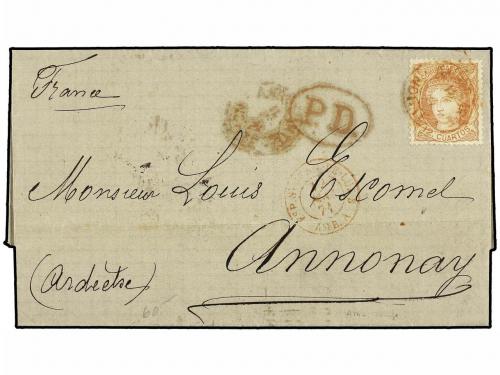 France
P.D.
CUARTOS
Monsieur Louis Escomel
Annonay
(Ardèche)